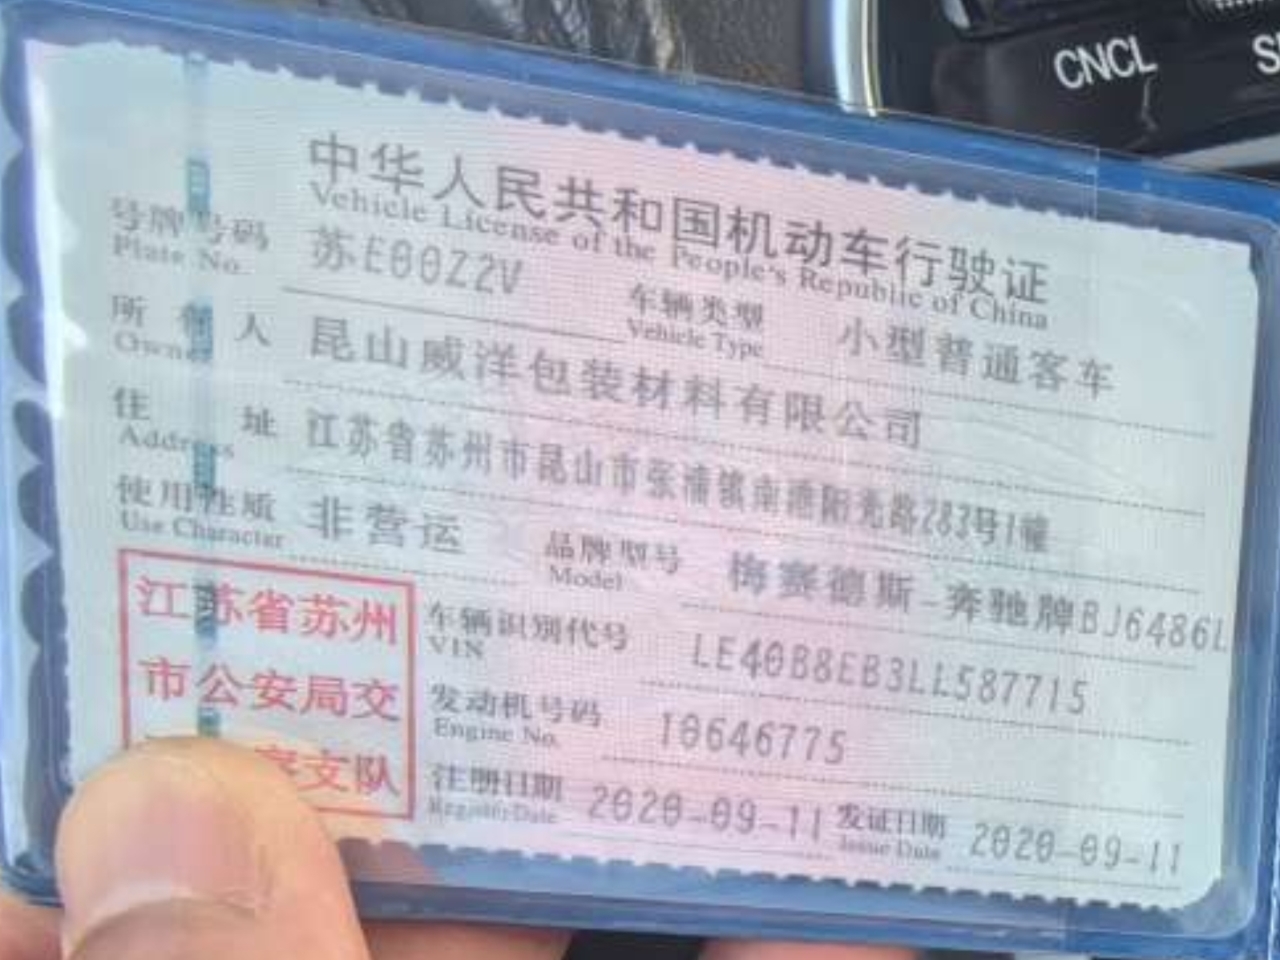 CNCL
中华人民共和国机动车行驶证
Vehicle License of the People's Republic of China
号牌号码 苏E00Z2V 车辆类型 小型普通客车
Plate No. Vehicle Type
所有人 昆山威洋包装材料有限公司
Owner
住址 江苏省苏州市昆山市张浦镇南港阳光路283号1幢
Address
使用性质 非营运 品牌型号 梅赛德斯-奔驰牌BJ6486L
Use Character Model
江苏省苏州
市公安局交
察支队
车辆识别代号 LE40B8EB3LL587715
VIN
发动机号码 10646775
Engine No.
注册日期 2020-09-11 发证日期 2020-09-11
Register Date Issue Date